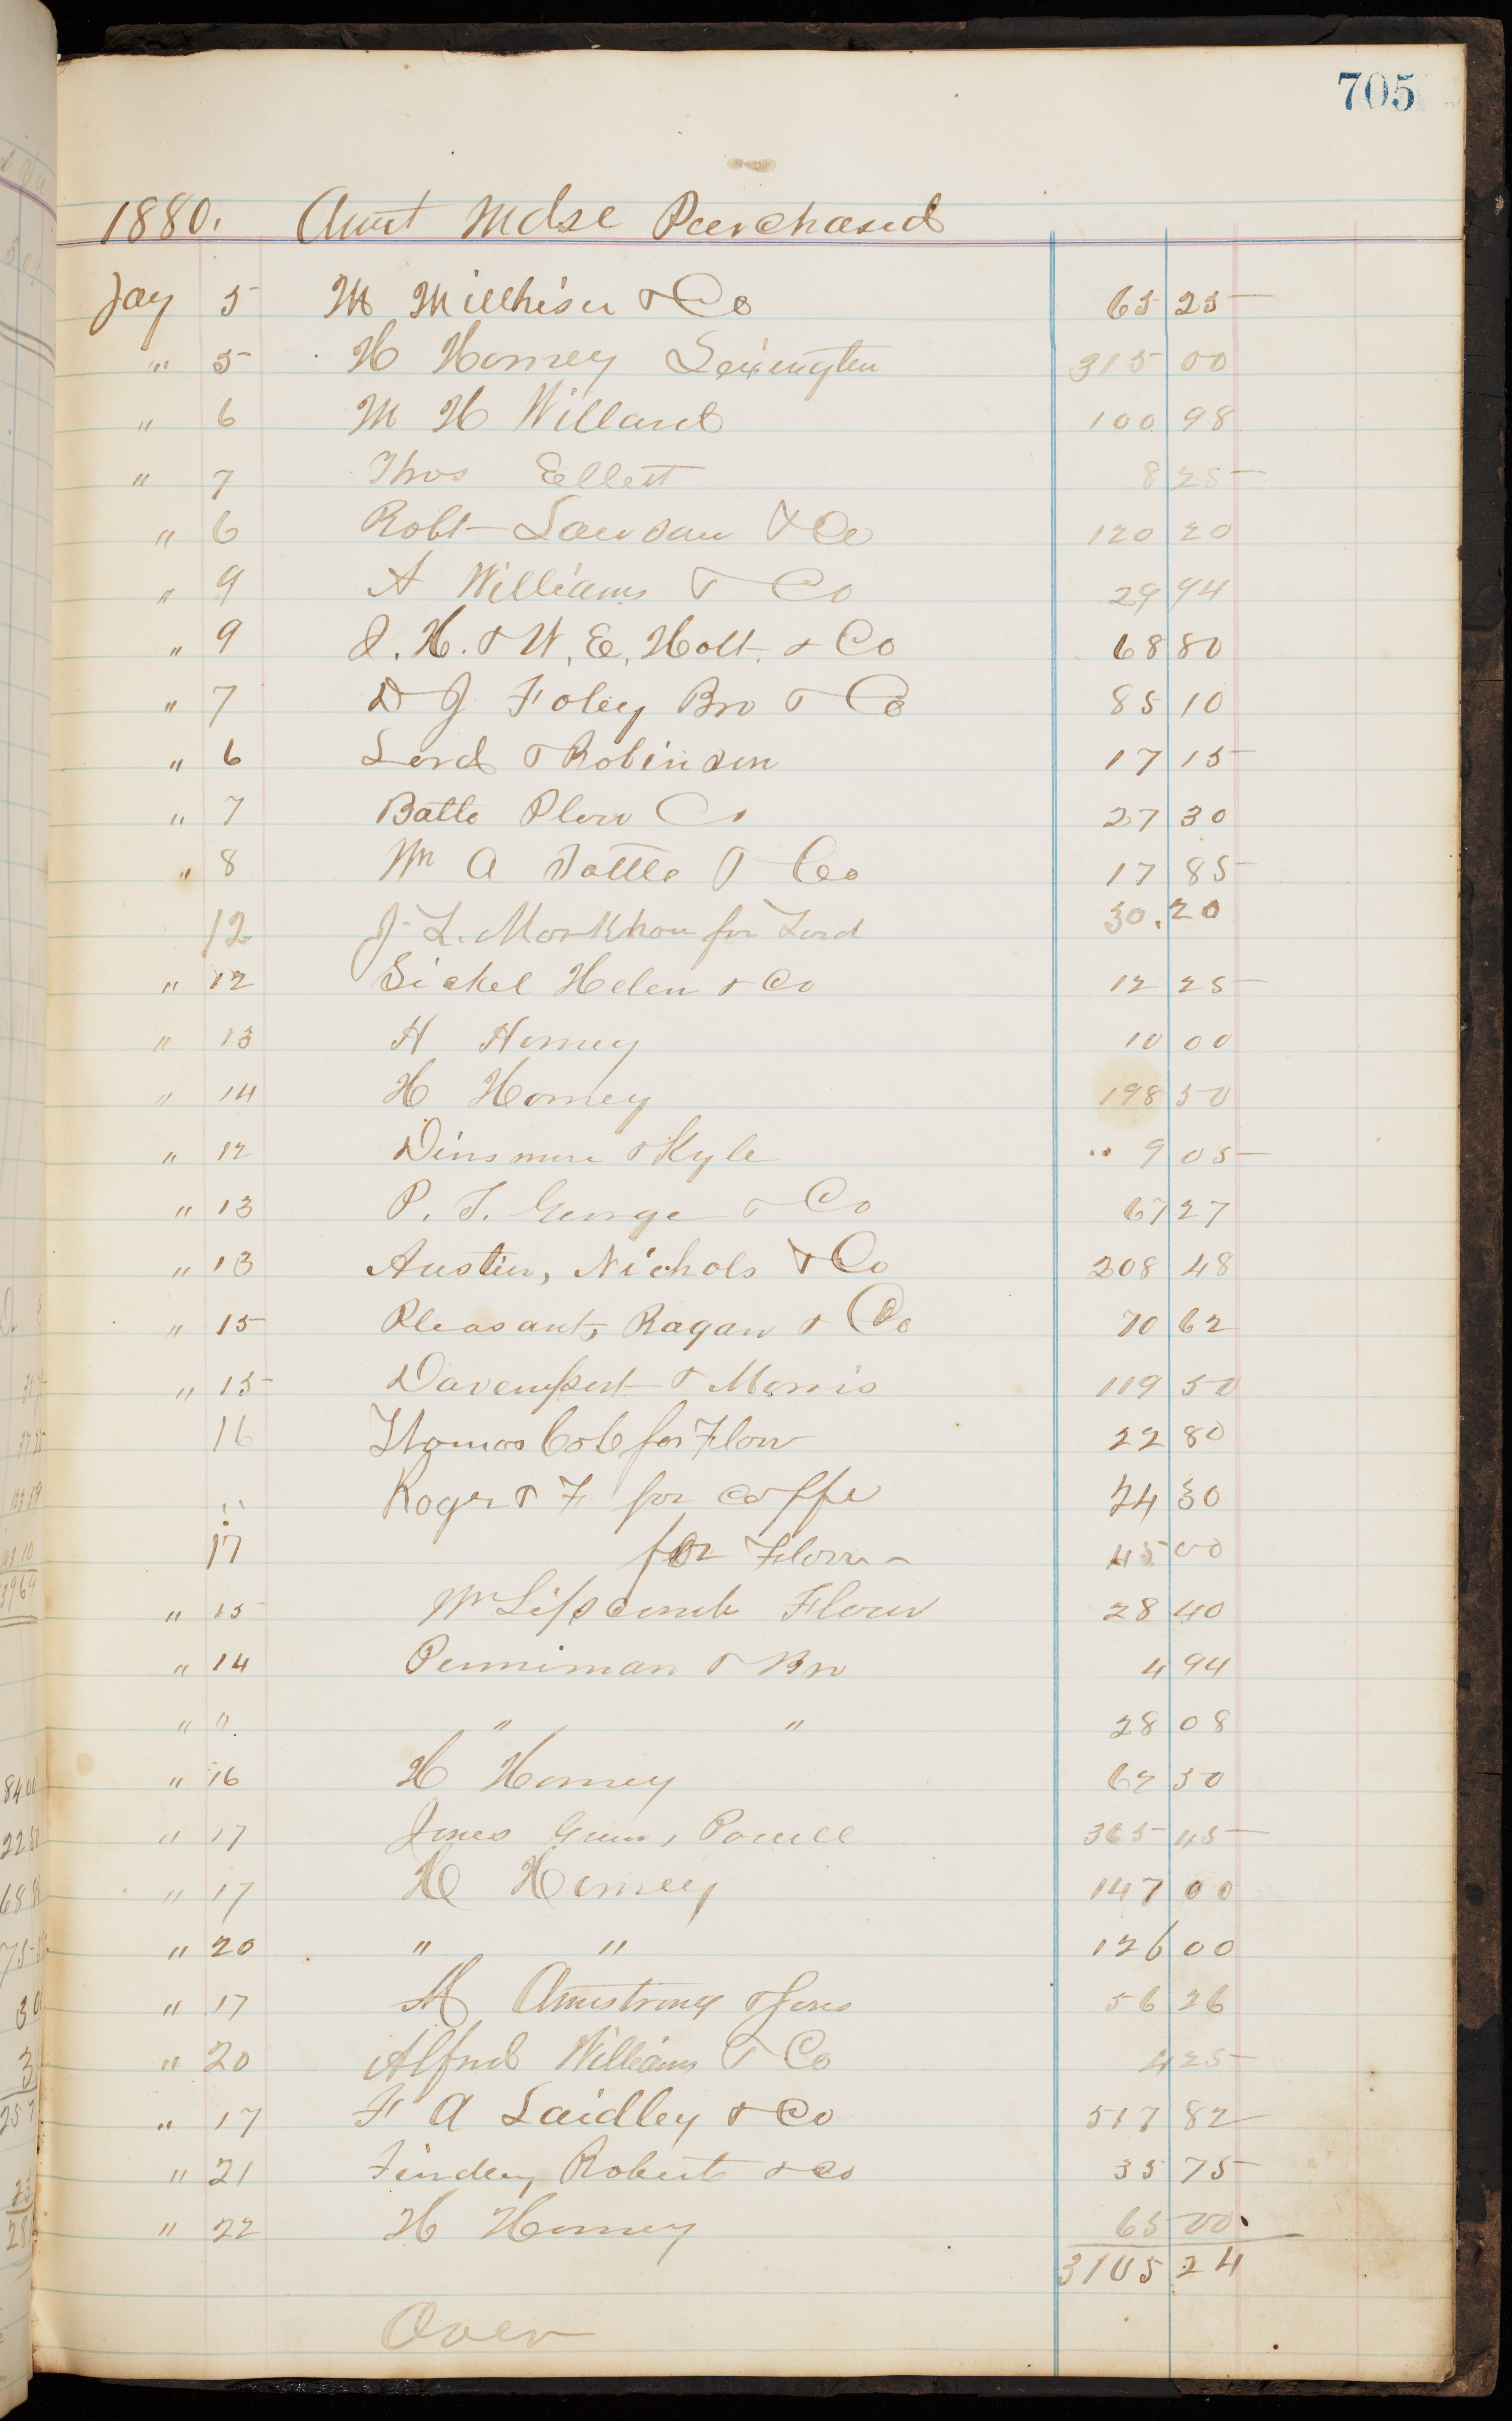 705
1880. Amt Mdse Purchased
Jay 5 M Millhiser & Co 65 25
" 5 H Horney Lexington 315 00
" 6 M H Willard 100 98
" 7 Thos Ellett 8 25
" 6 Robt Lawson & Co 120 20
" 9 A Williams & Co 29 94
" 9 J. H. & W. E. Holt & Co 68 80
" 7 D J Foley Bro & Co 85 10
" 6 Lord & Robinson 17 15
" 7 Batto Plow Co 27 30
" 8 Wm A Tottle & Co 17 85
12 J. L. Markham for Lard 30.20
" 12 Sickel Helen & Co 12 25
" 13 H Horney 10 00
" 14 H Horney 198 50
" 12 Dinsmore & Kyle 9 05
" 13 P. T. George & Co 67 27
" 13 Austin, Nichols & Co 208 48
" 15 Pleasants, Ragan & Co 70 62
" 15 Davenport & Morris 119 50
16 Thomas Cob for Flour 22 80
" Roger & F for coffe 24 30
17 for Flour 45 00
" 15 Wm Lipscomb Flour 28 40
" 14 Penniman & Bro 4 94
" " " " 28 08
" 16 H Horney 62 50
" 17 Jones Gunn, Powell 365 45
" 17 H Horney 147 00
" 20 " " 126 00
" 17 M Armstrong & Sons 56 26
" 20 Alfred Williams & Co 4 25
" 17 F A Laidley & Co 517 82
" 21 Findley Roberts & Co 35 75
" 22 H Horney 65 00
3105 24
Over